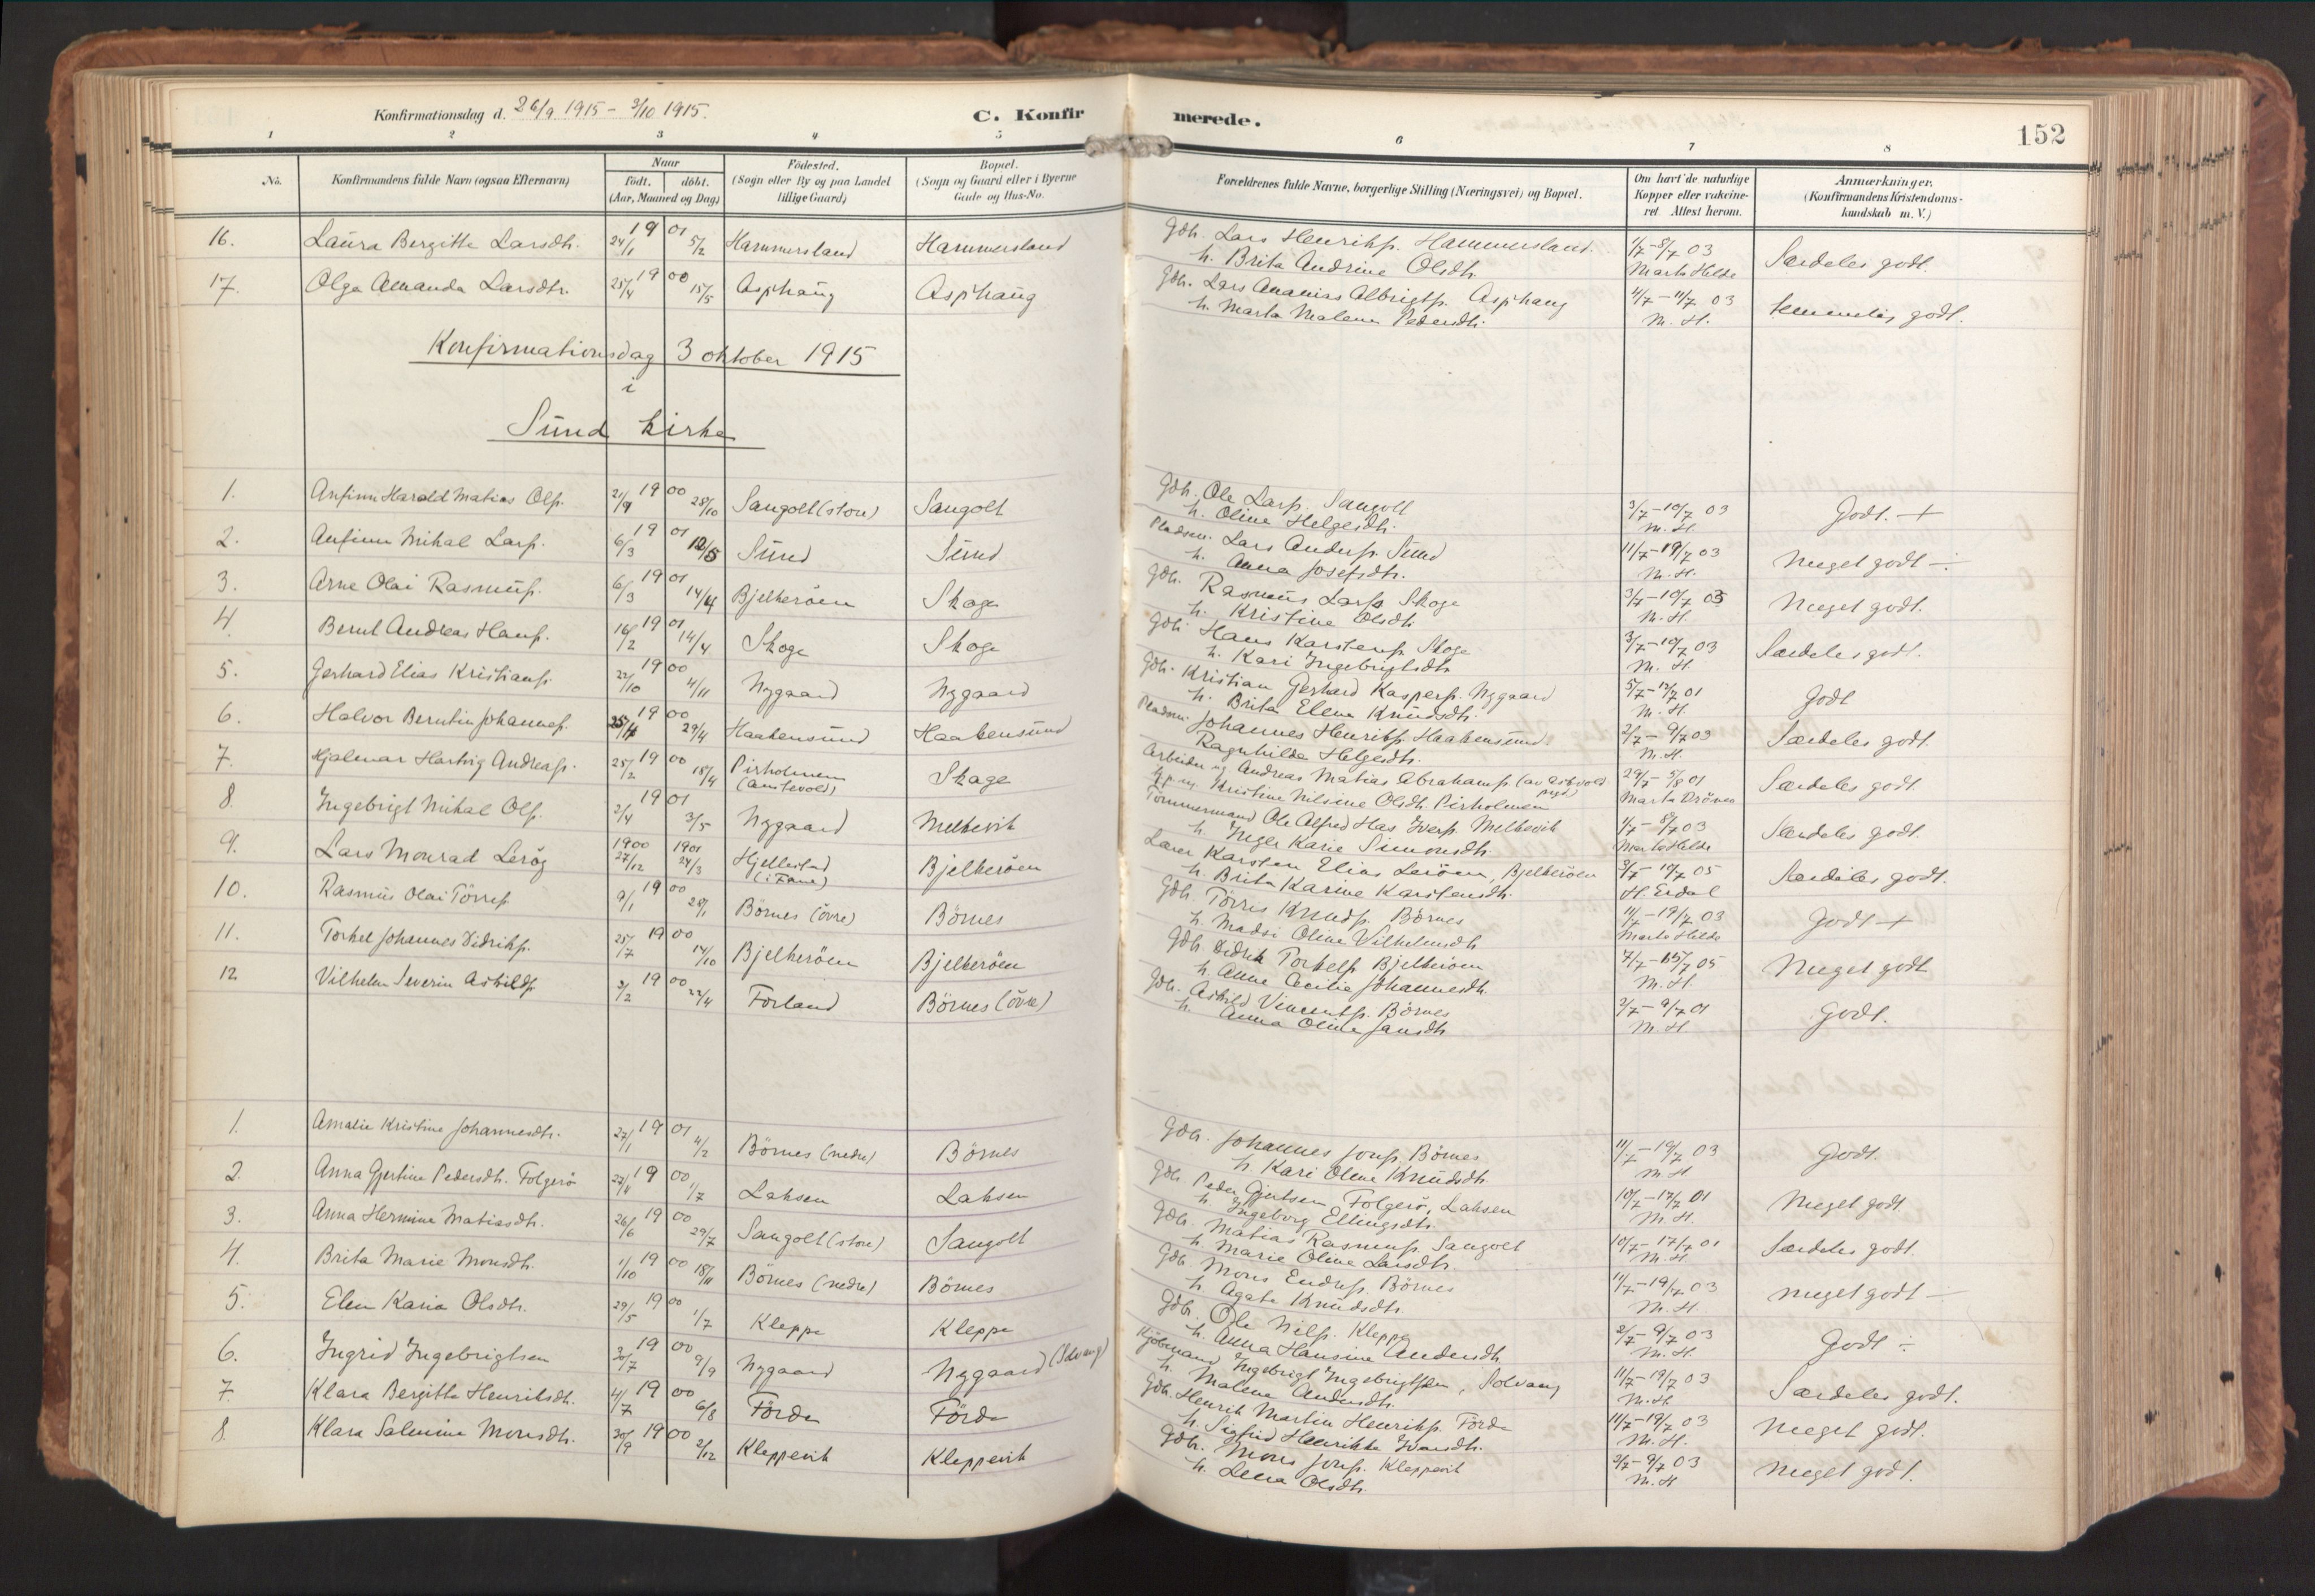 Konfirmationsdag d. 26/9 1915 - 3/10 1915.
C. Konfirmerede.
152
1 2 3 4 5 6 7 8
No.
Konfirmandens fulde Navn (ogsaa Efternavn)
Naar
født. døbt.
(Aar, Maaned og Dag)
Fødested.
(Sogn eller By og paa Landet tillige Gaard)
Bopæl.
(Sogn og Gaard eller i Byerne Gade og Hus-No.
Forældrenes fulde Navne, borgerlige Stilling (Næringsvei) og Bopæl.
Om havt de naturlige Kopper eller vakcineret. Attest herom.
Anmærkninger.
(Konfirmandens Kristendomskundskab m. V.)
16. Laura Bergitte Larsdtr. 24/1 1901 5/2 Hammersland Hammersland Gdb. Lars Henrikss. Hammersland. 1/7-8/7 03 Særdeles godt.
h. Brita Andrine Olsdtr. Marta Helde
17. Olga Amanda Larsdtr. 25/4 1900 15/5 Asphaug Asphaug Gdb. Lars Ananias Albrigts. Asphaug 4/7-11/7 03 temmelig godt.
h. Marta Malene Pedersdtr. M. H.
Konfirmationsdag 3 oktober 1915
i
Sund kirke
1. Anfinn Harald Matias Ols. 21/9 1900 28/10 Sangolt (store) Sangolt Gdb. Ole Larss. Sangolt 3/7-10/7 03 Godt. +
h. Oline Helgesdtr. M. H.
2. Anfinn Mikal Lars. 6/3 1901 Sund Sund Pladsm. Lars Anderss. Sund 11/7-19/7 03 Meget godt ÷
h. Anna Josefsdtr. M. H.
3. Arne Olai Rasmuss. 6/3 1901 14/4 Bjelkerøen Skoge Gdb. Rasmus Larss. Skoge 3/7-10/7 03 Meget godt.
h. Kristine Olsdtr. M. H.
4. Bernt Andreas Hanss. 16/2 1901 14/4 Skoge Skoge Gdb. Hans Karstens. Skoge 3/7-10/7 03 Særdeles godt.
h. Kari Ingebrigtsdtr. M. H.
5. Gerhard Elias Kristians. 22/10 1900 4/11 Nygaard Nygaard Gdb. Kristian Gerhard Kaspers. Nygaard 5/7-12/7 01 Godt
h. Brita Elene Knudsdtr. M. H.
6. Halvor Berntin Johanness. 1900 29/4 Haakensund Haakensund Pladsm. Johannes Henriks. Haakensund. 2/7-9/7 03 Særdeles godt.
Ragnhilda Helgesdtr. M. H.
7. Hjalmar Hartvig Andreass. 25/2 1900 18/4 Pirholmen (Austevold) Skage Arbeider ug. Andreas Matias Abrahams. (av Askvold pgd.) 29/7-5/8 01 Særdeles godt.
Kristine Nilsine Olsdtr. Pirholmen Marta Drönen
8. Ingebrigt Mikal Ols. 2/4 1901 3/5 Nygaard Melkevik Tømmermand Ole Alfred Has Ivers. Melkevik 1/7-8/7 03 Særdeles godt.
h. Inger Karie Simonsdtr. Marta Helde
9. Lars Monrad Lerøy 1900 27/12 1901 24/3 Hjellestad (i Fane) Bjelkerøen Lærer Karsten Elias Lerøen, Bjelkerøen 3/7-10/7 05 Særdeles godt.
h. Brita Karine Karstensdtr. H. Erdal
10. Rasmus Olai Tørress. 9/1 1900 28/1 Börnes (övre) Börnes Gdb. Tørris Knuds. Börnes 11/7-19/7 03 Godt +
h. Madsi Oline Vilhelmsdtr. Marta Helde
11. Torkel Johannes Didriks. 25/7 1900 14/10 Bjelkerøen Bjelkerøen Gdb. Didrik Torkels. Bjelkerøen 7/7-15/7 05 Meget godt
h. Anne Cecilie Johannesdtr. M. H.
12 Vilhelm Severin Askilds. 3/2 1900 22/4 Forland Börnes (övre) Gdb. Askild Vincents. Börnes 2/7-9/7 01 Godt.
h. Anna Oline Jansdtr. M. H.
1. Amalie Kristine Johannesdtr. 27/1 1901 4/2 Börnes (nedre) Börnes Gdb. Johannes Jons. Börnes 11/7-19/7 03 Godt.
h. Kari Oline Knudsdtr. M H
2. Anna Gjertine Pedersdtr. Folgerö 1900 1/7 Laksen Laksen Gdb Peder Gjertsen Folgerö, Laksen 10/7-17/7 01 Meget godt
h Ingeborg Ellingsdtr. M. H.
3. Anna Hermine Matiasdtr. 26/6 1900 29/7 Sangolt (store) Sangolt Gdb. Matias Rasmuss. Sangolt 10/7-17/7 01 Særdeles godt.
h Marie Oline Larsdtr. M. H
4. Brita Marie Monsdtr. 1/10 1900 18/11 Börnes (nedre) Börnes Gdb. Mons Endres. Börnes 11/7-19/7 03 meget godt -
h Agate Knudsdtr. M. H.
5. Elen Karia Olsdtr. 29/5 1900 1/7 Kleppe Kleppe Gdb. Ole Nils. Kleppe 2/7-9/7 03 Godt ÷
h. Anna Hansine Andersdtr. M. H.
6. Ingrid Ingebrigtsen 30/7 1900 9/9 Nygaard Nygaard (Solvang) Kjöbmand Ingebrigt Ingebrigtsen, Solvang 11/7-19/7 03 Særdeles godt.
h. Malene Andersdtr. M. H
7. Klara Bergitte Henriksdtr. 4/7 1900 6/8 Förde Förde Gdb. Henrik Martin Henriks. Förde 11/7-19/7 03 Meget godt.
h. Sigfrid Henrikke Iversdtr. M. H.
8. Klara Salmine Monsdtr. 30/9 1900 2/12 Kleppevik Kleppevik Gdb. Mons Jons. Kleppevik 2/7-9/7 03 Meget godt.
h. Lena Olsdtr. M. H